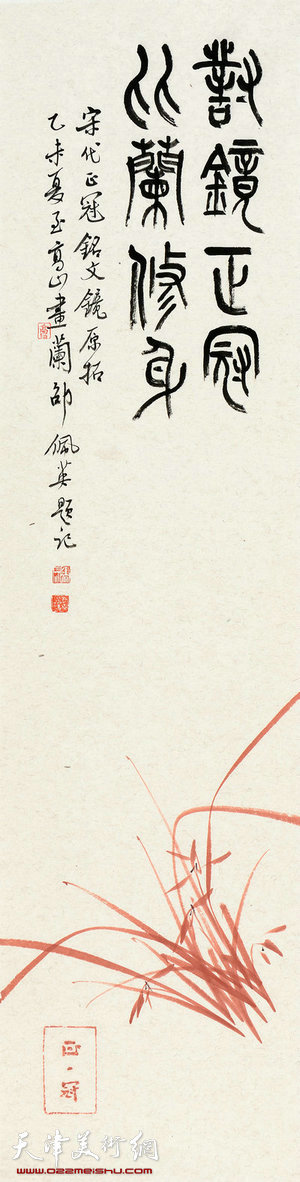 對鏡正冠
比蘭修身
宋代正冠銘文鏡原拓
乙未夏至高山畫蘭邵佩英題記
正冠
天津美術網
www.022meishu.com